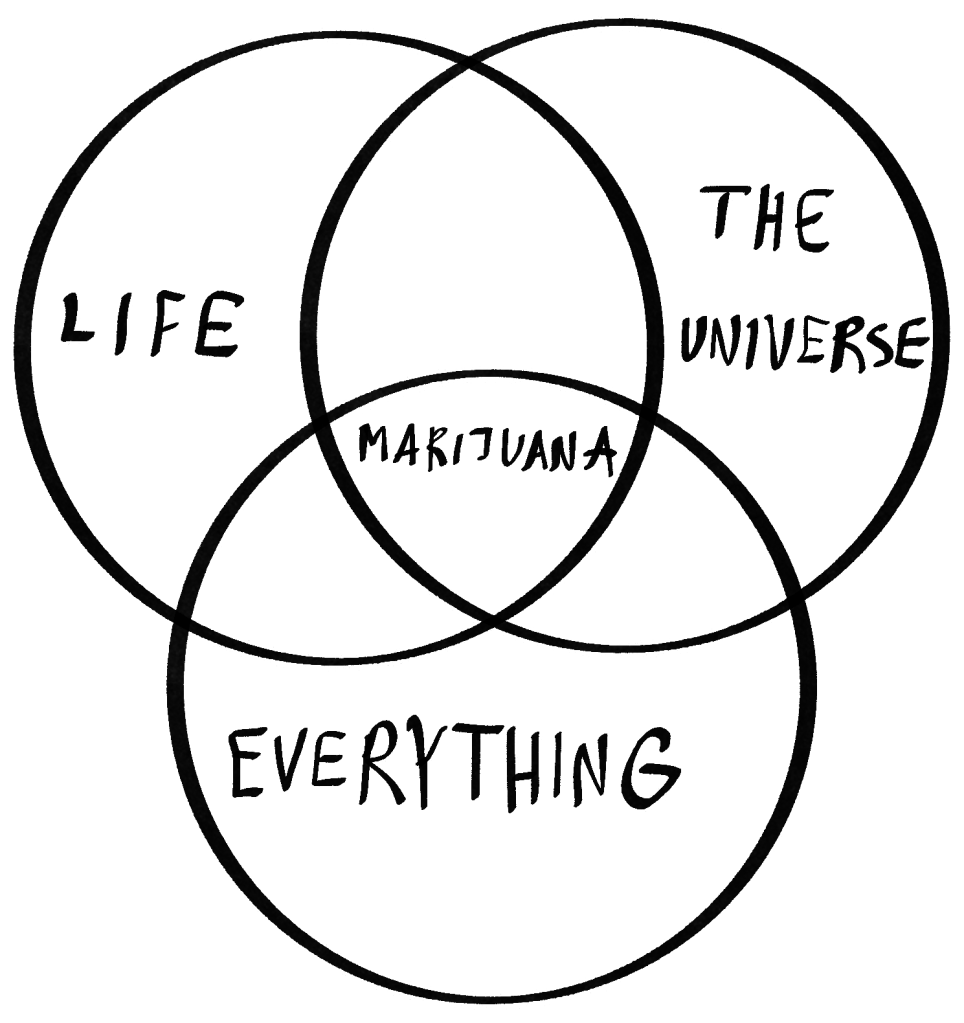 THE
LIFE
UNIVERSE
MARIJUANA
EVERYTHING